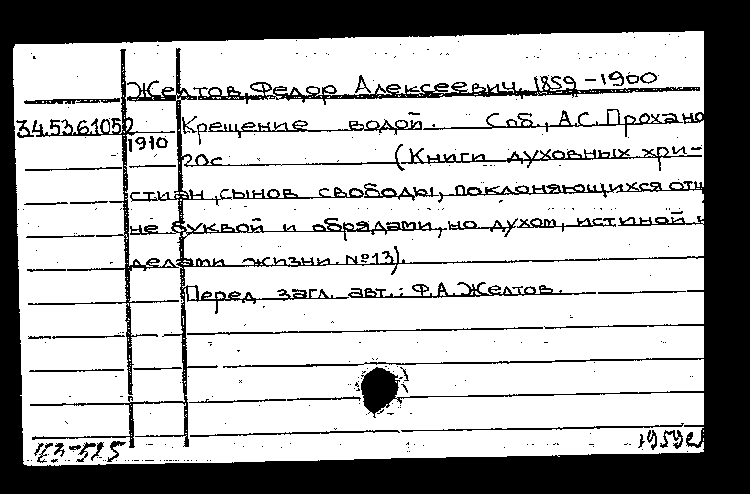 Желтов, Федор Алексеевич, 1859-1900
34.53.6.1052 Крещение водой. Спб., А.С. Прохано
1910
20с (Книги духовных хри-
стиан, сынов свободы, поклоняющихся отц
не буквой и обрядами, но духом, истиной и
делами жизни. №13).
Перед загл. авт.: Ф.А. Желтов.